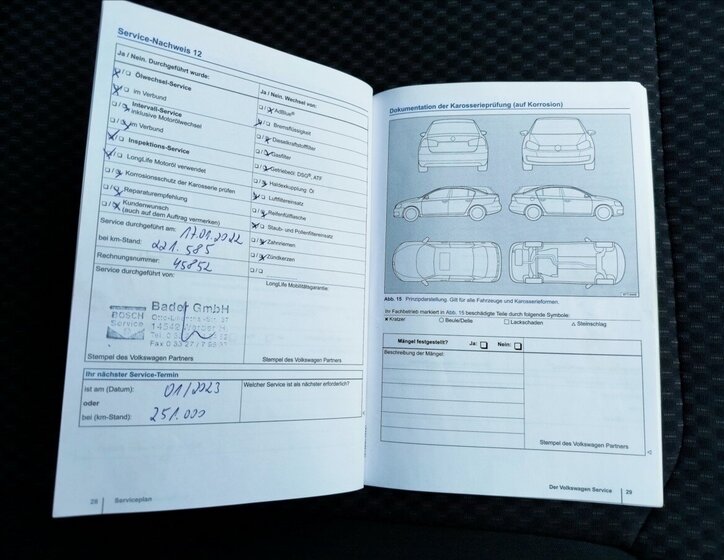 Service-Nachweis 12
Ja / Nein. Durchgeführt wurde:
Ölwechsel-Service
im Verbund
Intervall-Service
inklusive Motorölwechsel
im Verbund
Inspektions-Service
LongLife Motoröl verwendet
Korrosionsschutz der Karosserie prüfen
Reparaturempfehlung
Kundenwunsch
(auch auf dem Auftrag vermerken)
Service durchgeführt am: 17.01.2022
bei km-Stand: 221.585
Rechnungsnummer: 45852
Service durchgeführt von:
BOSCH
Service
Bader GmbH
Stempel des Volkswagen Partners
Ja / Nein. Wechsel von:
AdBlue®
Bremsflüssigkeit
Dieselkraftstofffilter
Gasfilter
Getriebeöl: DSG®, ATF
Haldexkupplung: Öl
Luftfiltereinsatz
Reifenfüllflasche
Staub- und Pollenfiltereinsatz
Zahnriemen
Zündkerzen
LongLife Mobilitätsgarantie:
Ihr nächster Service-Termin
ist am (Datum): 01/2023
oder
bei (km-Stand): 251.000
Welcher Service ist als nächster erforderlich?
28 Serviceplan
Dokumentation der Karosserieprüfung (auf Korrosion)
Abb. 15 Prinzipdarstellung. Gilt für alle Fahrzeuge und Karosserieformen.
Ihr Fachbetrieb markiert in Abb. 15 beschädigte Teile durch folgende Symbole:
Kratzer Beule/Delle Lackschaden Steinschlag
Mängel festgestellt? Ja: Nein:
Beschreibung der Mängel:
Stempel des Volkswagen Partners
Der Volkswagen Service 29